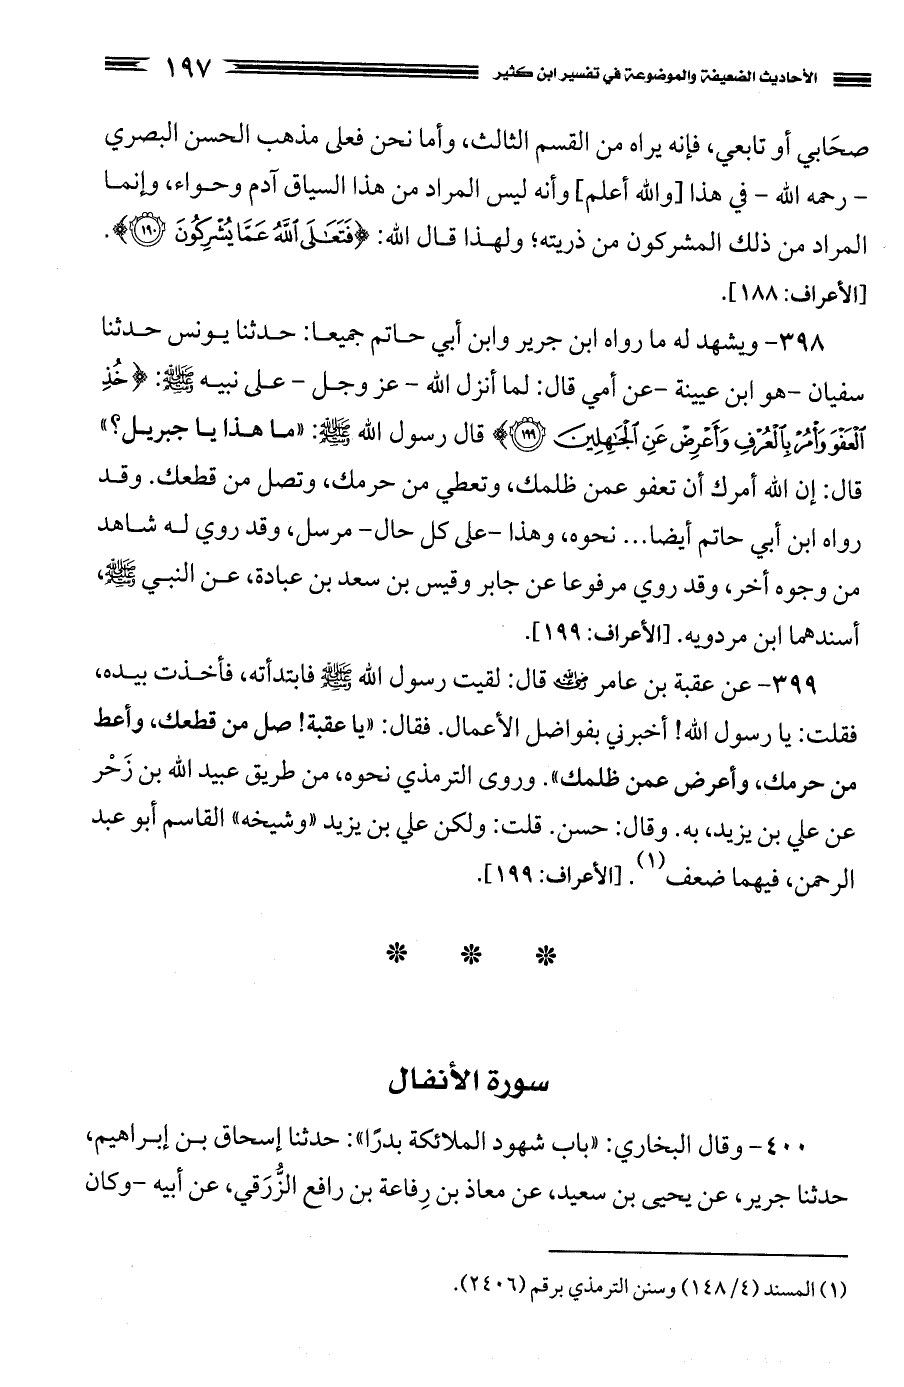 الأحاديث الضعيفة والموضوعة في تفسير ابن كثير ١٩٧
صحَابي أو تابعي، فإنه يراه من القسم الثالث، وأما نحن فعلى مذهب الحسن البصري
- رحمه الله - في هذا [والله أعلم] وأنه ليس المراد من هذا السياق آدم وحواء، وإنما
المراد من ذلك المشركون من ذريته؛ ولهذا قال الله: ﴿فَتَعَٰلَى ٱللَّهُ عَمَّا يُشْرِكُونَ ١٩٠﴾.
[الأعراف: ١٨٨].
٣٩٨- ويشهد له ما رواه ابن جرير وابن أبي حاتم جميعا: حدثنا يونس حدثنا
سفيان -هو ابن عيينة -عن أمي قال: لما أنزل الله - عز وجل - على نبيه ﷺ: ﴿خُذِ
ٱلْعَفْوَ وَأْمُرْ بِٱلْعُرْفِ وَأَعْرِضْ عَنِ ٱلْجَٰهِلِينَ ١٩٩﴾ قال رسول الله ﷺ: «ما هذا يا جبريل؟»
قال: إن الله أمرك أن تعفو عمن ظلمك، وتعطي من حرمك، وتصل من قطعك. وقد
رواه ابن أبي حاتم أيضا... نحوه، وهذا -على كل حال- مرسل، وقد روي له شاهد
من وجوه أخر، وقد روي مرفوعا عن جابر وقيس بن سعد بن عبادة، عن النبي ﷺ،
أسندهما ابن مردويه. [الأعراف: ١٩٩].
٣٩٩- عن عقبة بن عامر رضي الله عنه قال: لقيت رسول الله ﷺ فابتدأته، فأخذت بيده،
فقلت: يا رسول الله! أخبرني بفواضل الأعمال. فقال: «يا عقبة! صل من قطعك، وأعط
من حرمك، وأعرض عمن ظلمك». وروى الترمذي نحوه، من طريق عبيد الله بن زَحْر
عن علي بن يزيد، به. وقال: حسن. قلت: ولكن علي بن يزيد «وشيخه» القاسم أبو عبد
الرحمن، فيهما ضعف(١). [الأعراف: ١٩٩].
* * *
سورة الأنفال
٤٠٠- وقال البخاري: «باب شهود الملائكة بدرًا»: حدثنا إسحاق بن إبراهيم،
حدثنا جرير، عن يحيى بن سعيد، عن معاذ بن رِفاعة بن رافع الزُّرَقي، عن أبيه -وكان
(١) المسند (٤/ ١٤٨) وسنن الترمذي برقم (٢٤٠٦).